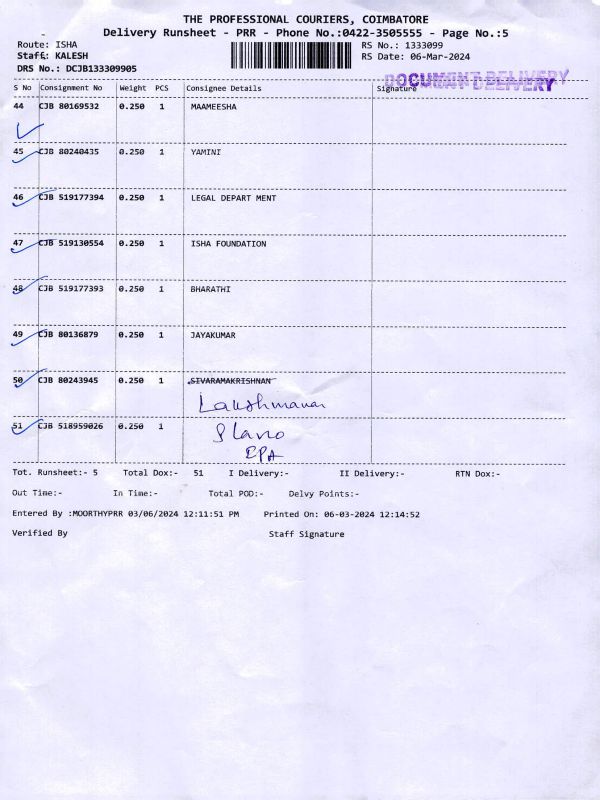 THE PROFESSIONAL COURIERS, COIMBATORE
Delivery Runsheet - PRR - Phone No.:0422-3505555 - Page No.:5
Route: ISHA
RS No.: 1333099
Staff: KALESH
RS Date: 06-Mar-2024
DRS No.: DCJB133309905
DOCUMENT DELIVERY
S No Consignment No Weight PCS Consignee Details Signature
44 CJB 80169532 0.250 1 MAAMEESHA
45 CJB 80240435 0.250 1 YAMINI
46 CJB 519177394 0.250 1 LEGAL DEPART MENT
47 CJB 519130554 0.250 1 ISHA FOUNDATION
48 CJB 519177393 0.250 1 BHARATHI
49 CJB 80136879 0.250 1 JAYAKUMAR
50 CJB 80243945 0.250 1 SIVARAMAKRISHNAN
Lakshmanan
51 CJB 518959026 0.250 1
EPA
Tot. Runsheet:- 5 Total Dox:- 51 I Delivery:- II Delivery:- RTN Dox:-
Out Time:- In Time:- Total POD:- Delvy Points:-
Entered By :MOORTHYPRR 03/06/2024 12:11:51 PM Printed On: 06-03-2024 12:14:52
Verified By Staff Signature